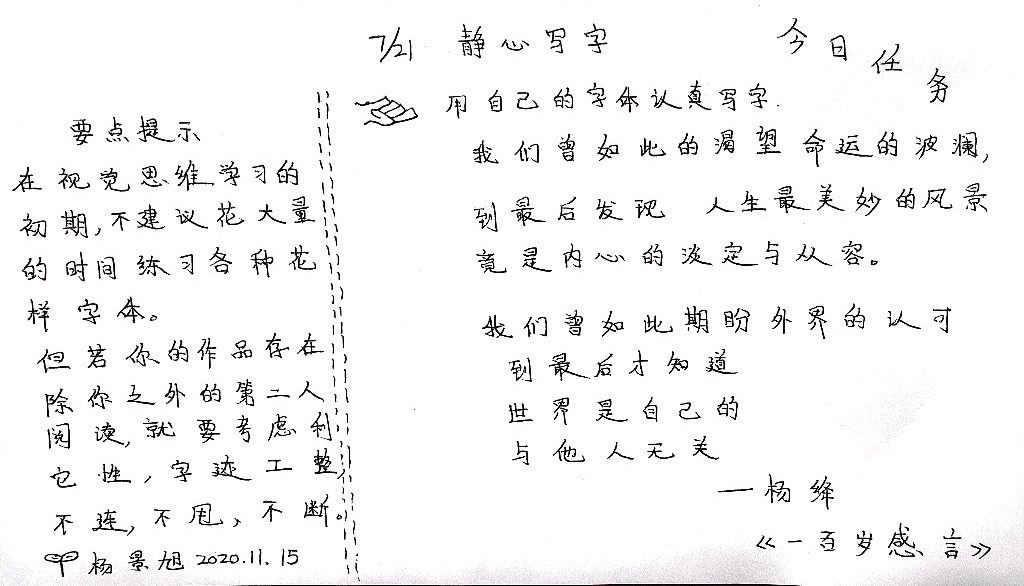 7/21 静心写字
今日任务
要点提示
在视觉思维学习的
初期,不建议花大量
的时间练习各种花
样字体。
但若你的作品存在
除你之外的第二人
阅读,就要考虑利
它性,字迹工整,
不连,不甩、不断。
杨景旭 2020.11.15
用自己的字体认真写字.
我们曾如此的渴望命运的波澜,
到最后发现 人生最美妙的风景
竟是内心的淡定与从容。
我们曾如此期盼外界的认可
到最后才知道
世界是自己的
与他人无关
—杨绛
《一百岁感言》